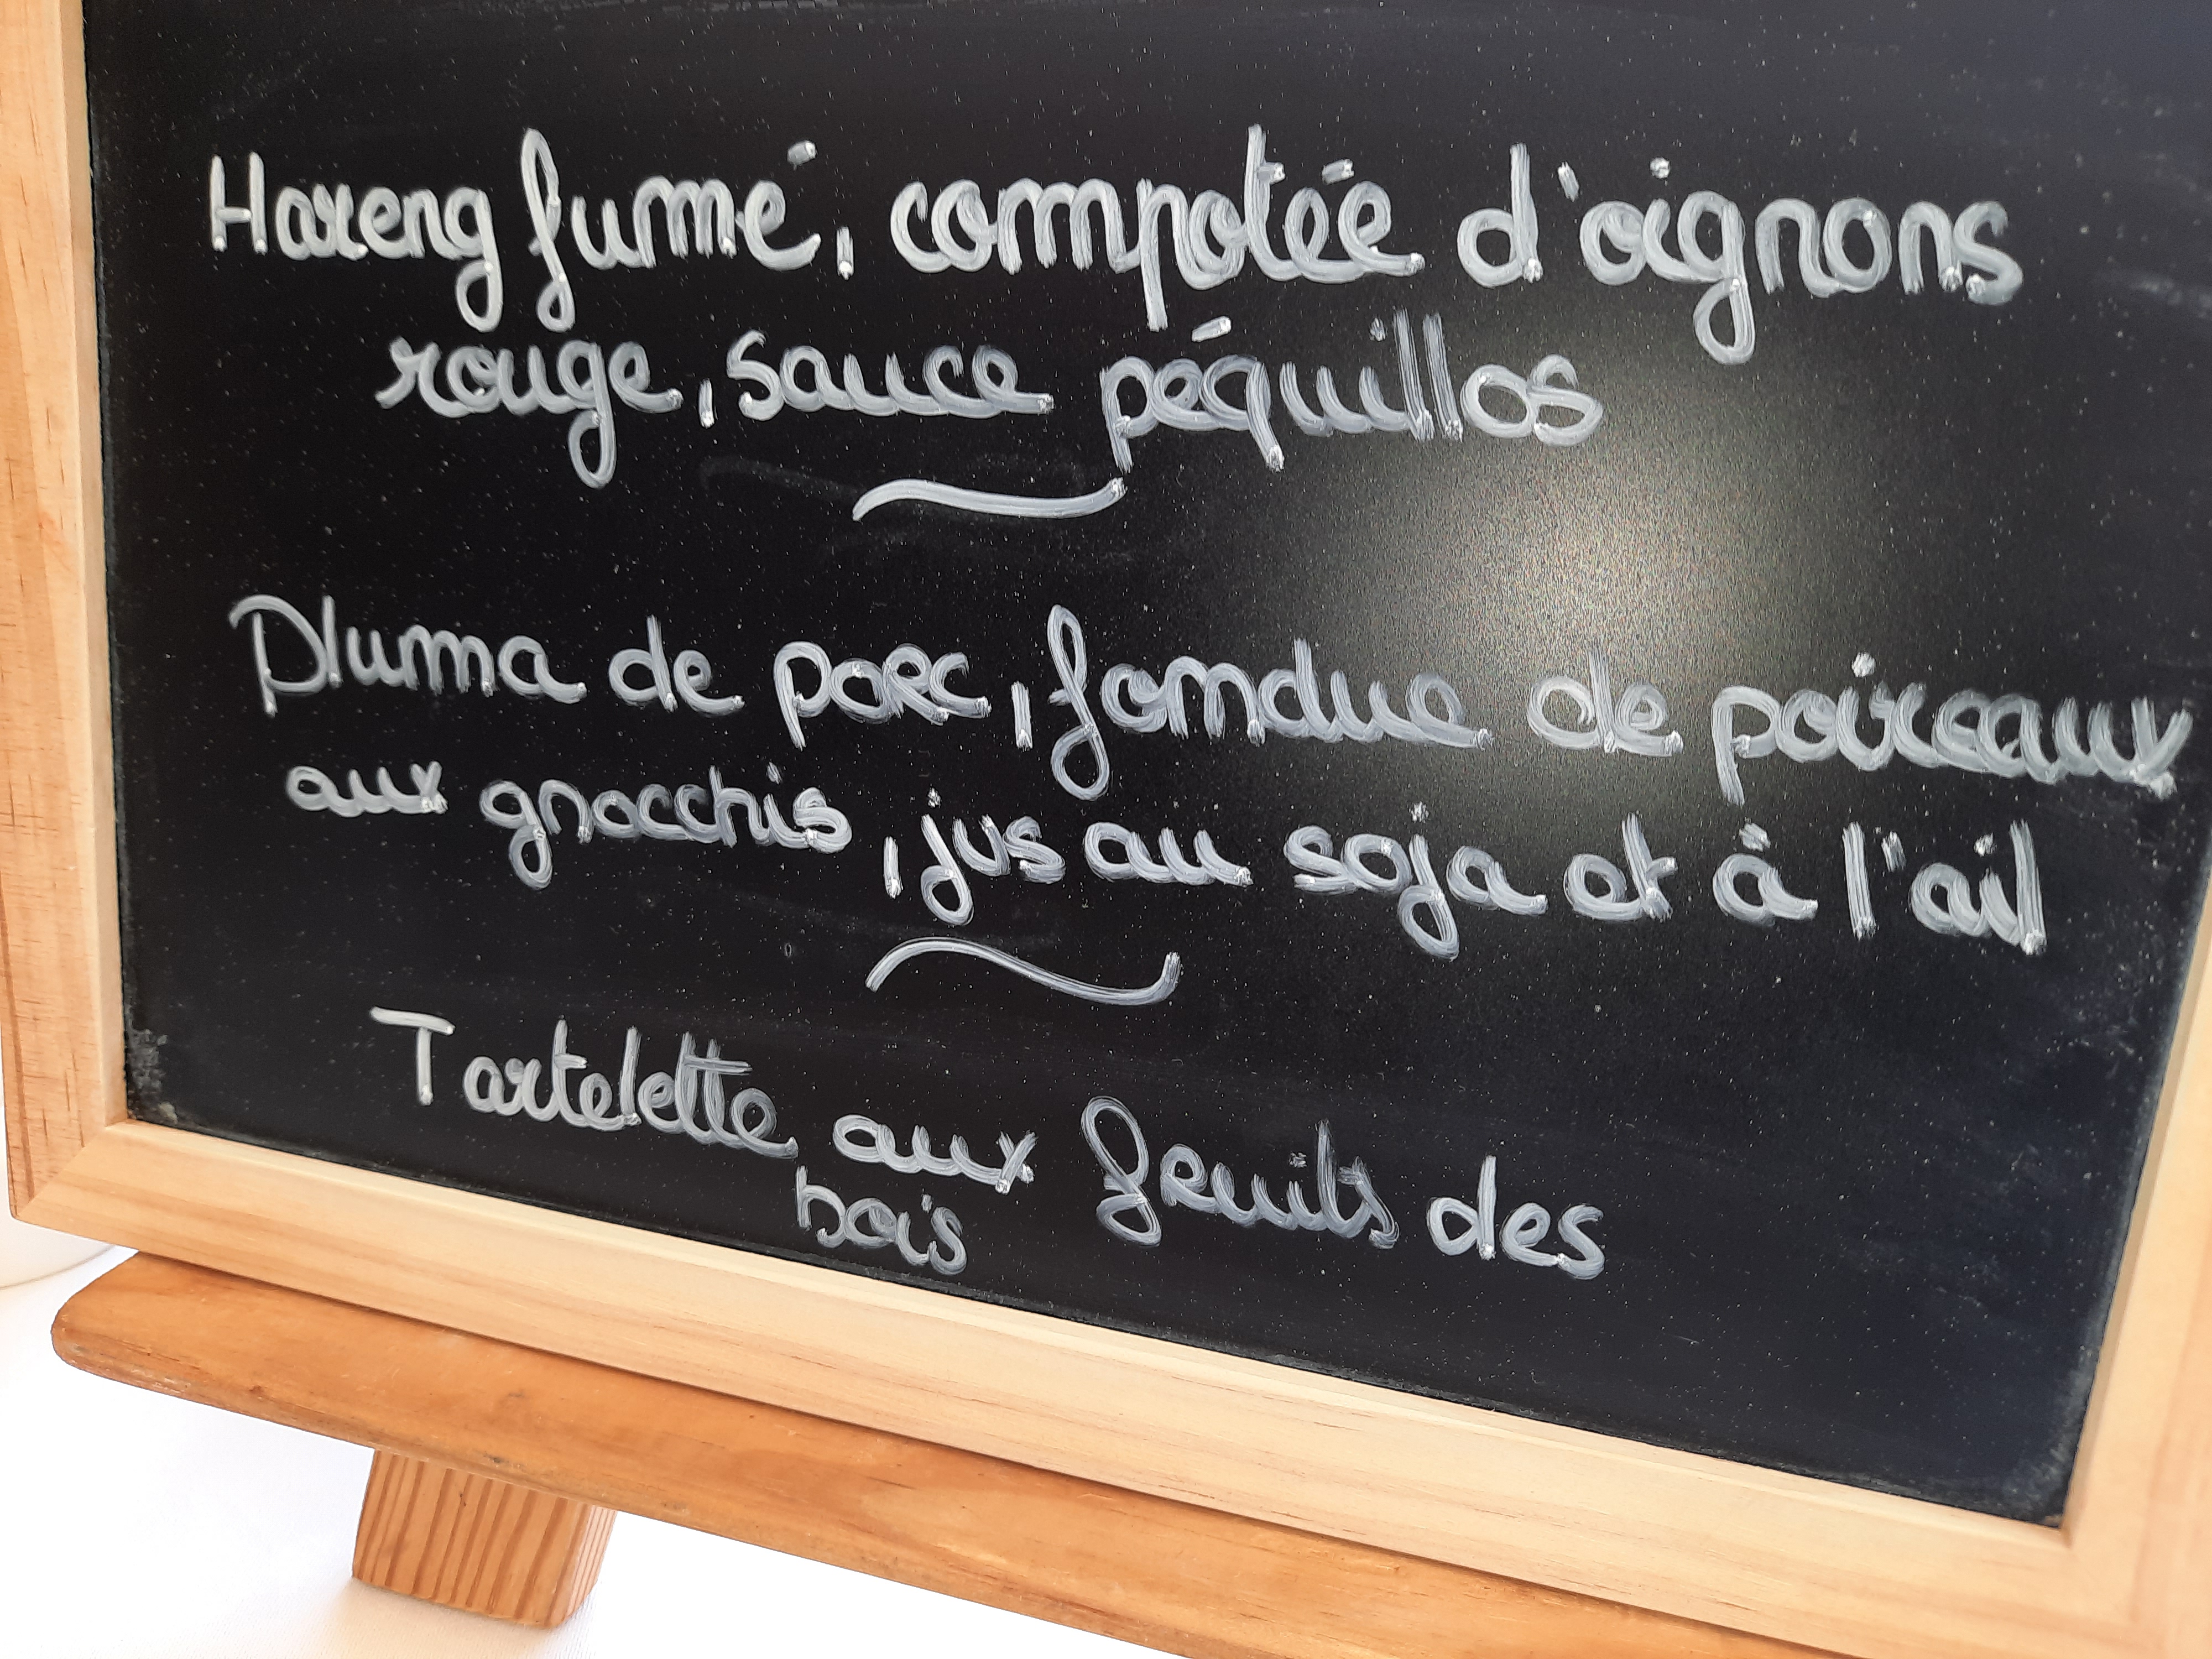 Hareng fumé, compotée d'oignons
rouge, sauce péquillos
Pluma de porc, fondue de poireaux
aux gnocchis, jus au soja et à l'ail
Tartelette aux fruits des
bois